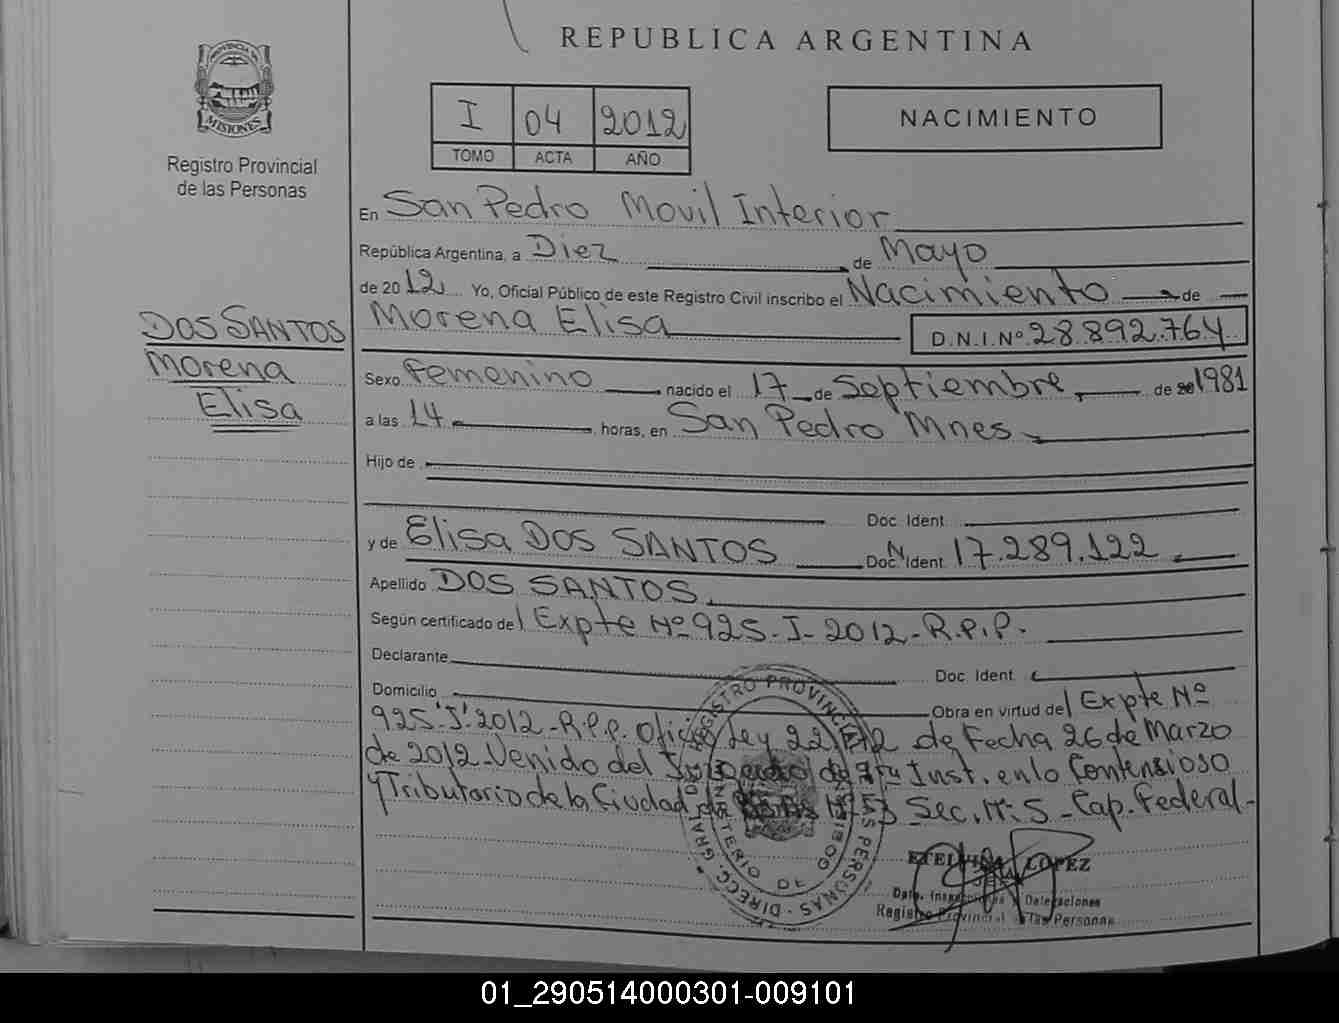 REPUBLICA ARGENTINA
PROVINCIA DE
MISIONES
Registro Provincial
de las Personas
I 04 2012
TOMO ACTA AÑO
NACIMIENTO
En San Pedro Movil Interior
República Argentina, a Diez de Mayo
de 2012 Yo, Oficial Público de este Registro Civil inscribo el Nacimiento de
Morena Elisa D.N.I.Nº 28.892.764
DOS SANTOS
Morena
Elisa
Sexo Femenino nacido el 17 de Septiembre de 1981
a las 14 horas, en San Pedro Mnes
Hijo de
Doc. Ident.
y de Elisa DOS SANTOS Doc. N Ident. 17.289.122
Apellido DOS SANTOS
Según certificado del Expte Nº 925-I-2012-R.P.P.
Declarante Doc. Ident.
Domicilio Obra en virtud del Expte Nº
925'I'2012-R.P.P. Oficio Ley de Fecha 26 de Marzo
de 2012-Venido del Juzgado de Inst. en lo Contensioso
y Tributario de la Ciudad Sec. Nº 5 - Cap. Federal-
REGISTRO PROVINCIAL DE LAS PERSONAS - DIRECC. GRAL.
MINISTERIO DE GOBIERNO
ETELVINA LOPEZ
Dpto. Inspecciones y Delegaciones
Registro Provincial de las Personas
01_290514000301-009101